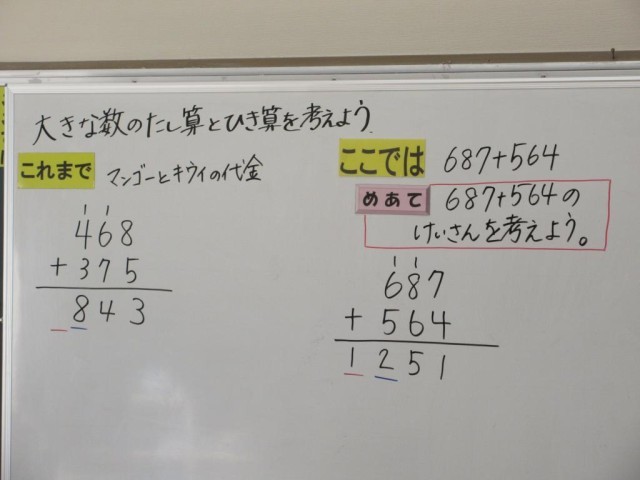 大きな数のたし算とひき算を考えよう.
これまで マンゴーとキウイの代金
1 1
468
+375
843
ここでは 687+564
めあて 687+564の
けいさんを考えよう。
1 1
687
+564
1251